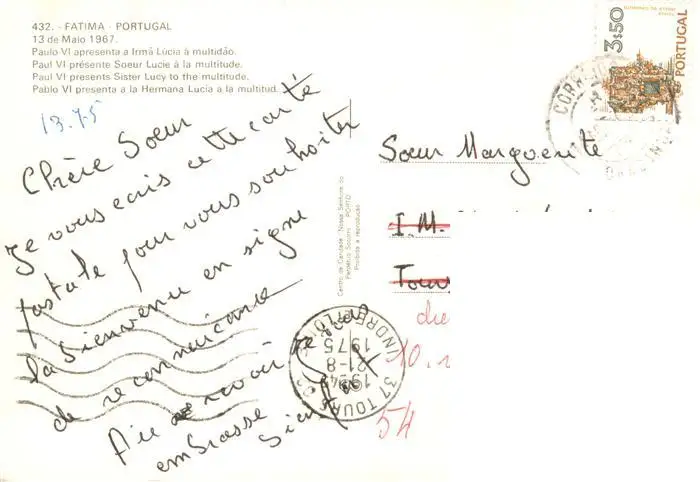 432. - FATIMA - PORTUGAL
13 de Maio 1967.
Paulo VI apresenta a Irmã Lúcia à multidão.
Paul VI présente Soeur Lucie à la multitude.
Paul VI presents Sister Lucy to the multitude.
Pablo VI presenta a la Hermana Lucia a la multitud.
13.7.5
Chère Soeur
Je vous ecris cette carte
postale pour vous souhaiter
la bienvenue en signe
de reconnaicance
Au revoir Je
embrasse
Centro da Caridade "Nossa Senhora do
Perpétuo Socorro" PORTO
Proibida a reprodução
3$50
PORTUGAL
CORREIOS
Soeur Marguerite
I.M.
Tour
die
10.
54
37 TOURS
1975
21-8
INDRE ET LOIRE